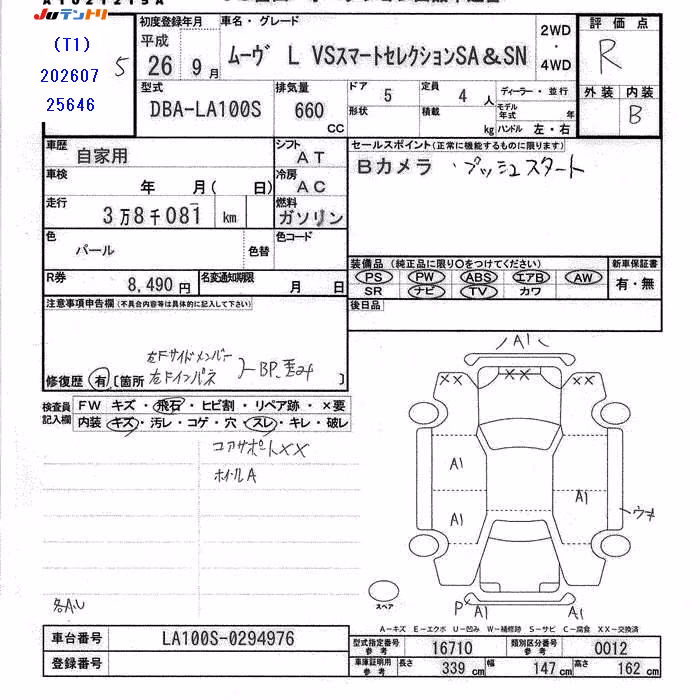 JU テントリ
(T1)
202607
25646
5
初度登録年月
平成
26 9月
車名・グレード
ムーヴ L VSスマートセレクションSA&SN
2WD
・
4WD
評価点
R
外装 内装
B
型式
DBA-LA100S
排気量
660
CC
ドア
5
形状
定員
4人
積載
kg
ディーラー・並行
モデル年式 年
ハンドル 左・右
車歴
自家用
シフト
AT
車検
年 月(日)
冷房
AC
走行
3万8千081 km
燃料
ガソリン
色
パール
色替
色コード
R券
8,490円
名変通知期限
月 日
セールスポイント(正常に機能するものに限ります)
Bカメラ ・プッシュスタート
装備品(純正品に限り〇をつけてください)
PS PW ABS エアB AW
SR ナビ TV カワ
新車保証書
有・無
後日品
注意事項申告欄(不具合内容等は具体的に記入して下さい)
左Fサイドメンバー
左Fインパネ
BP
修復歴 有 [箇所 ]
検査員
記入欄
FW キズ・飛石・ヒビ割・リペア跡・×要
内装 キズ・汚レ・コゲ・穴・スレ・キレ・破レ
コアサポートXX
ホイールA
各A.U
A1
XX
XX
XX
A1
A1
A1
ウオ
P
A1
A1
スペア
A−キズ E−エクボ U−凹み W−補修跡 S−サビ C−腐食 XX−交換済
車台番号
LA100S-0294976
登録番号
型式指定番号
参考
16710
類別区分番号
参考
0012
車庫証明用
参考
長さ 339 cm
幅 147 cm
高さ 162 cm